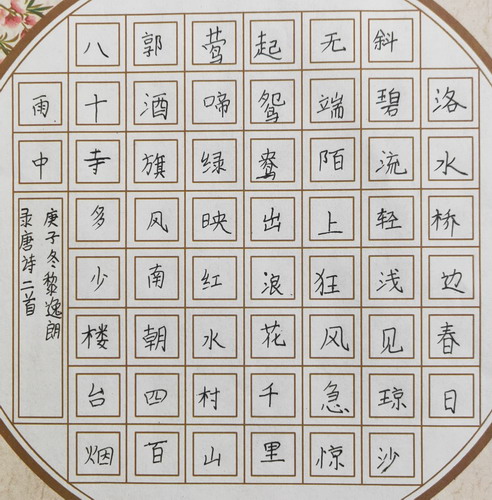 洛水桥边春日
斜碧流轻浅见琼沙
无端陌上狂风急惊
起鸳鸯出浪花千里
莺啼绿映红水村山
郭酒旗风南朝四百
八十寺多少楼台烟
雨中
庚子冬黎逸朗
录唐诗二首